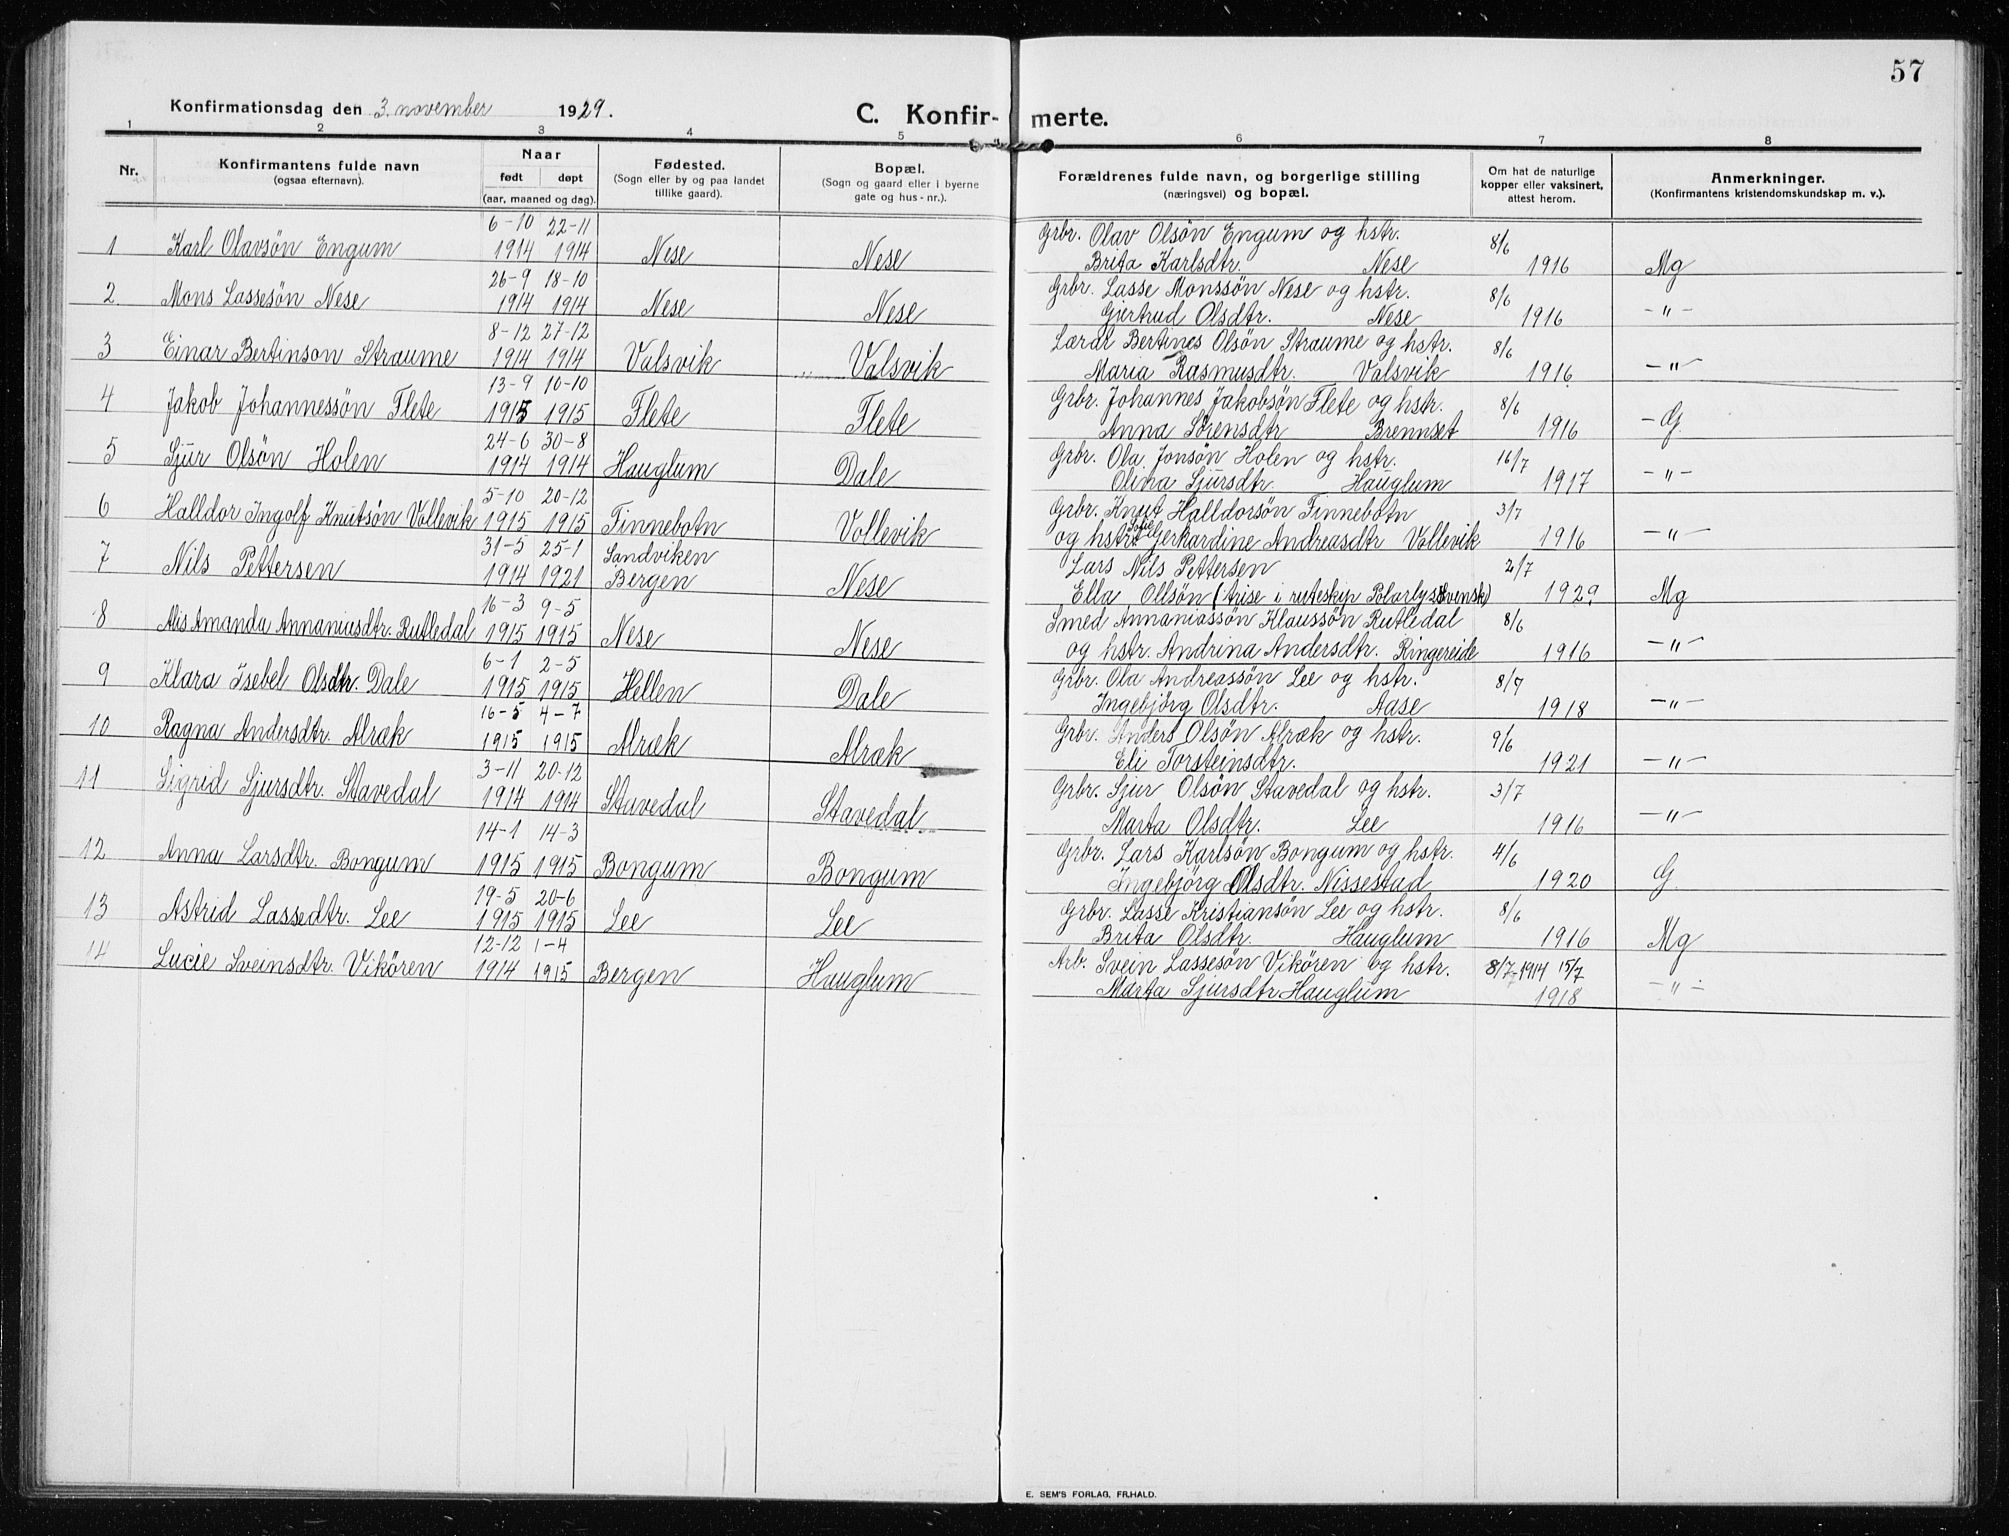 57
Konfirmationsdag den 3. november 1929.
C. Konfir- merte.
1 2 3 4 5 6 7 8
Nr. Konfirmantens fulde navn (ogsaa efternavn). Naar født døpt (aar, maaned og dag). Fødested. (Sogn eller by og paa landet tillike gaard). Bopæl. (Sogn og gaard eller i byerne gate og hus-nr.). Forældrenes fulde navn, og borgerlige stilling (næringsvei) og bopæl. Om hat de naturlige kopper eller vaksinert, attest herom. Anmerkninger. (Konfirmantens kristendomskundskap m. v.).
6-10 22-11 Grbr. Olav Olsøn Engum og hstr. 8/6
1 Karl Olavsøn Engum 1914 1914 Nese Nese Brita Karlsdtr. Nese 1916 Mg
26-9 18-10 Grbr. Lasse Monssøn Nese og hstr. 8/6
2 Mons Lassesøn Nese 1914 1914 Nese Nese Gjertrud Olsdtr. Nese 1916 -"-
8-12 27-12 Lærar Bertines Olsøn Straume og hstr. 8/6
3 Einar Bertinson Straume 1914 1914 Valsvik Valsvik Maria Rasmusdtr. Valsvik 1916 -"-
13-9 10-10 Grbr. Johannes Jakobsøn Flete og hstr. 8/6
4 Jakob Johannessøn Flete 1915 1915 Flete Flete Anna Sørensdtr Brennset 1916 -G
24-6 30-8 Grbr. Ola Jonsøn Holen og hstr. 16/7
5 Sjur Olsøn Holen 1914 1914 Hauglum Dale Olina Sjursdtr. Hauglum 1917 -"-
5-10 20-12 Grbr. Knut Halldorsøn Finnebotn 3/7
6 Halldor Ingolf Knutsøn Vollevik 1915 1915 Finnebotn Vollevik og hstr. Sofie Gerhardine Andreasdtr Vollevik 1916 -"-
31-5 25-1 Sandviken Lars Nils Pettersen 2/7
7 Nils Pettersen 1914 1921 Bergen Nese Ella Ollsøn (trise i ruteskip Polarlys. Svensk) 1929 Mg
16-3 9-5 Smed Annaniassøn Klaussøn Rutledal 8/6
8 Alis Amanda Annaniasdtr. Rutledal 1915 1915 Nese Nese og hstr. Andrina Andersdtr. Ringereide 1916 -"-
6-1 2-5 Grbr. Ola Andreassøn Lee og hstr. 8/7
9 Klara Isebel Olsdtr. Dale 1915 1915 Hellen Dale Ingebjørg Olsdtr. Aase 1918 -"-
16-5 4-7 Grbr. Anders Olsøn Alræk og hstr. 9/6
10 Ragna Andersdtr. Alræk 1915 1915 Alræk Alræk Eli Torsteinsdtr. 1921 -"-
3-11 20-12 Grbr. Sjur Olsøn Stavedal og hstr. 3/7
11 Sigrid Sjursdtr. Stavedal 1914 1914 Stavedal Stavedal Marta Olsdtr. Lee 1916 -"-
14-1 14-3 Grbr. Lars Karlsøn Bongum og hstr. 4/6
12 Anna Larsdtr. Bongum 1915 1915 Bongum Bongum Ingebjørg Olsdtr. Nissestad 1920 G
19-5 20-6 Grbr. Lasse Kristiansøn Lee og hstr. 8/6
13 Astrid Lassedtr. Lee 1915 1915 Lee Lee Brita Olsdtr. Hauglum 1916 Mg
12-12 1-4 Arb. Svein Lassesøn Vikören og hstr. 8/7-1914 15/7
14 Lucie Sveinsdtr. Vikören 1914 1915 Bergen Hauglum Marta Sjursdtr Hauglum 1918 -"-
E. SEM'S FORLAG, FR.HALD.